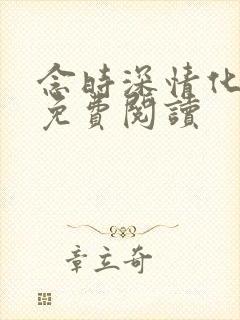 念時深情化
免費閱讀
章立奇